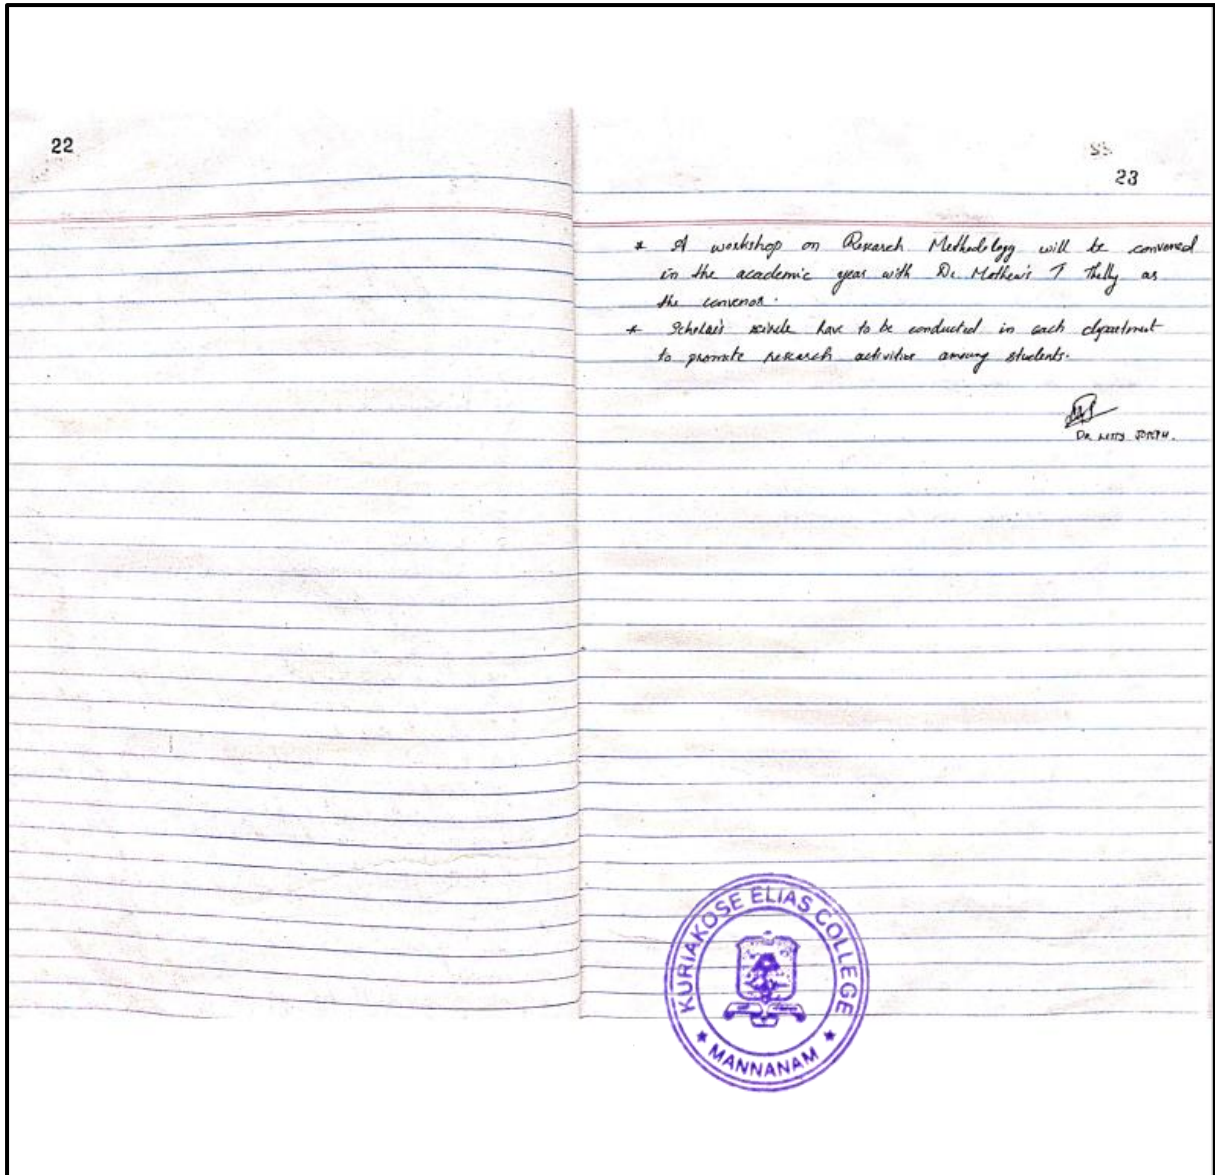 22
23
* A workshop on Research Methodology will be convened
in the academic year with Dr. Mathew's T Thelly as
the convenor.
* Scholar's have to be conducted in each department
to promote research activities among students.
DR. JOSEPH.
KURIAKOSE ELIAS COLLEGE
* MANNANAM *